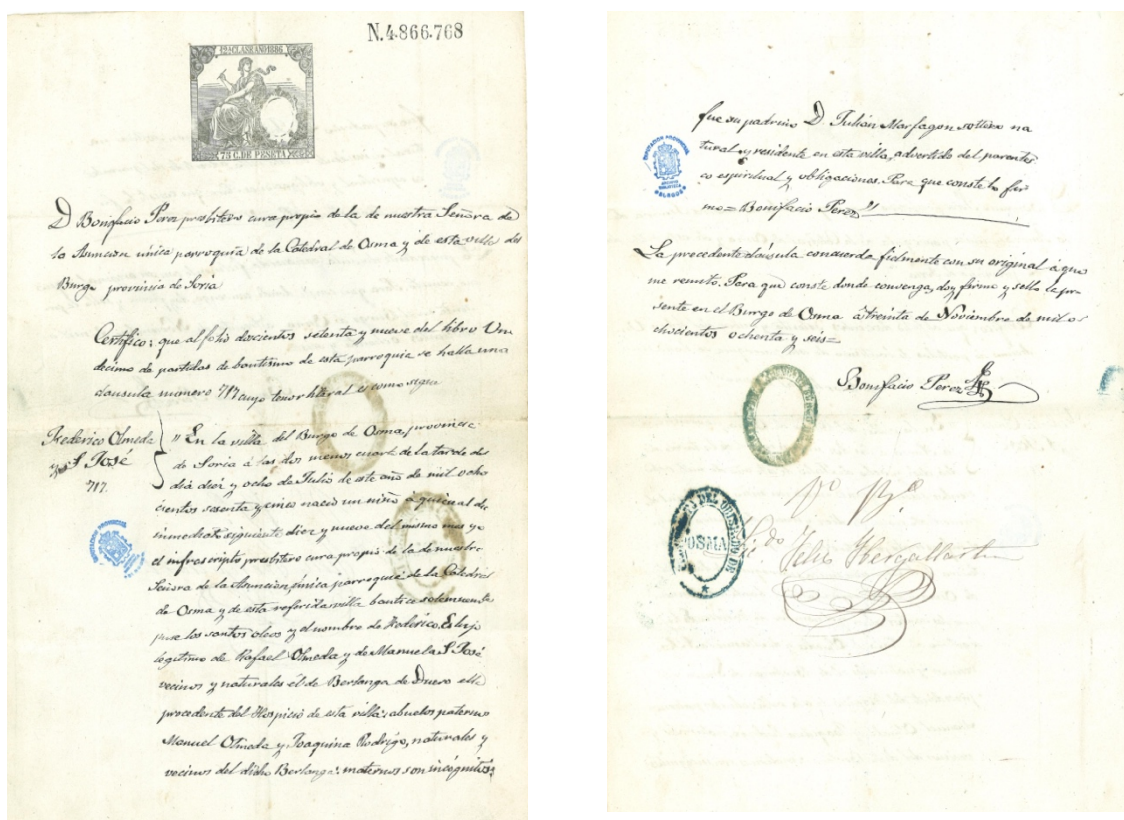 N.4.866.768
12ª CLASE AÑO 1886
75 C. DE PESETA
D Bonifacio Perez presbitero cura propio de la de nuestra Señora de
la Asuncion única parroquia de la Catedral de Osma y de esta villa del
Burgo provincia de Soria
Certifico: que al folio doscientos setenta y nueve del libro Un
decimo de partidas de bautismo de esta parroquia se halla una
clausula numero 717 cuyo tenor literal es como sigue
Federico Olmeda
y S. José
717.
" En la villa del Burgo de Osma, provincia
de Soria á las dos menos cuarto de la tarde del
dia diez y ocho de Julio de este año de mil ocho
cientos sesenta y cinco nació un niño a quien al dia
inmediato siguiente diez y nueve del mismo mes yo
el infrascripto presbitero cura propio de la de nuestra
Señora de la Asuncion, única parroquia de la Catedral
de Osma y de esta referida villa bauticé solemnemente
puse los santos oleos y el nombre de Federico. Es hijo
legitimo de Rafael Olmeda y de Manuela S. José
vecinos y naturales él de Berlanga de Duero ella
procedente del Hospicio de esta villa: abuelos paternos
Manuel Olmeda y Joaquina Rodrigo, naturales y
vecinos del dicho Berlanga: maternos son incógnitos:
fue su padrino D. Julián Marfagon soltero na
tural y residente en esta villa, advertido del parentes
co espiritual y obligaciones. Para que conste lo fir
mo = Bonifacio Perez"
La precedente cláusula concuerda fielmente con su original á que
me remito. Para que conste donde convenga, doy firmo y sello la pre
sente en el Burgo de Osma á treinta de Noviembre de mil o
chocientos ochenta y seis =
Bonifacio Perez
Vº Bº
Felix
OBISPADO DE
OSMA